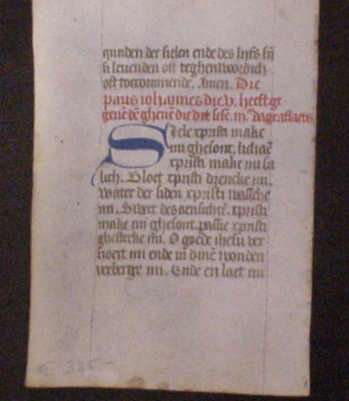 quaden der sielen ende des lijfs sij
si leuenden oft teghenwordich
oft toecomende. Amen. Die
paus iohannes die v. heeft ge
Siele xpristi make
mi ghesont. lichaē
xpristi make mi sa
lich. Bloet xpristi drencke mi.
Water der siden xpristi wassche
mi. Sweet des aensichts xpristi
make mi ghesont. passie xpristi
ghesterke mi. O goede ihesu ver
hoert mi ende in dinē wonden
verberge mi. Ende en laet mi